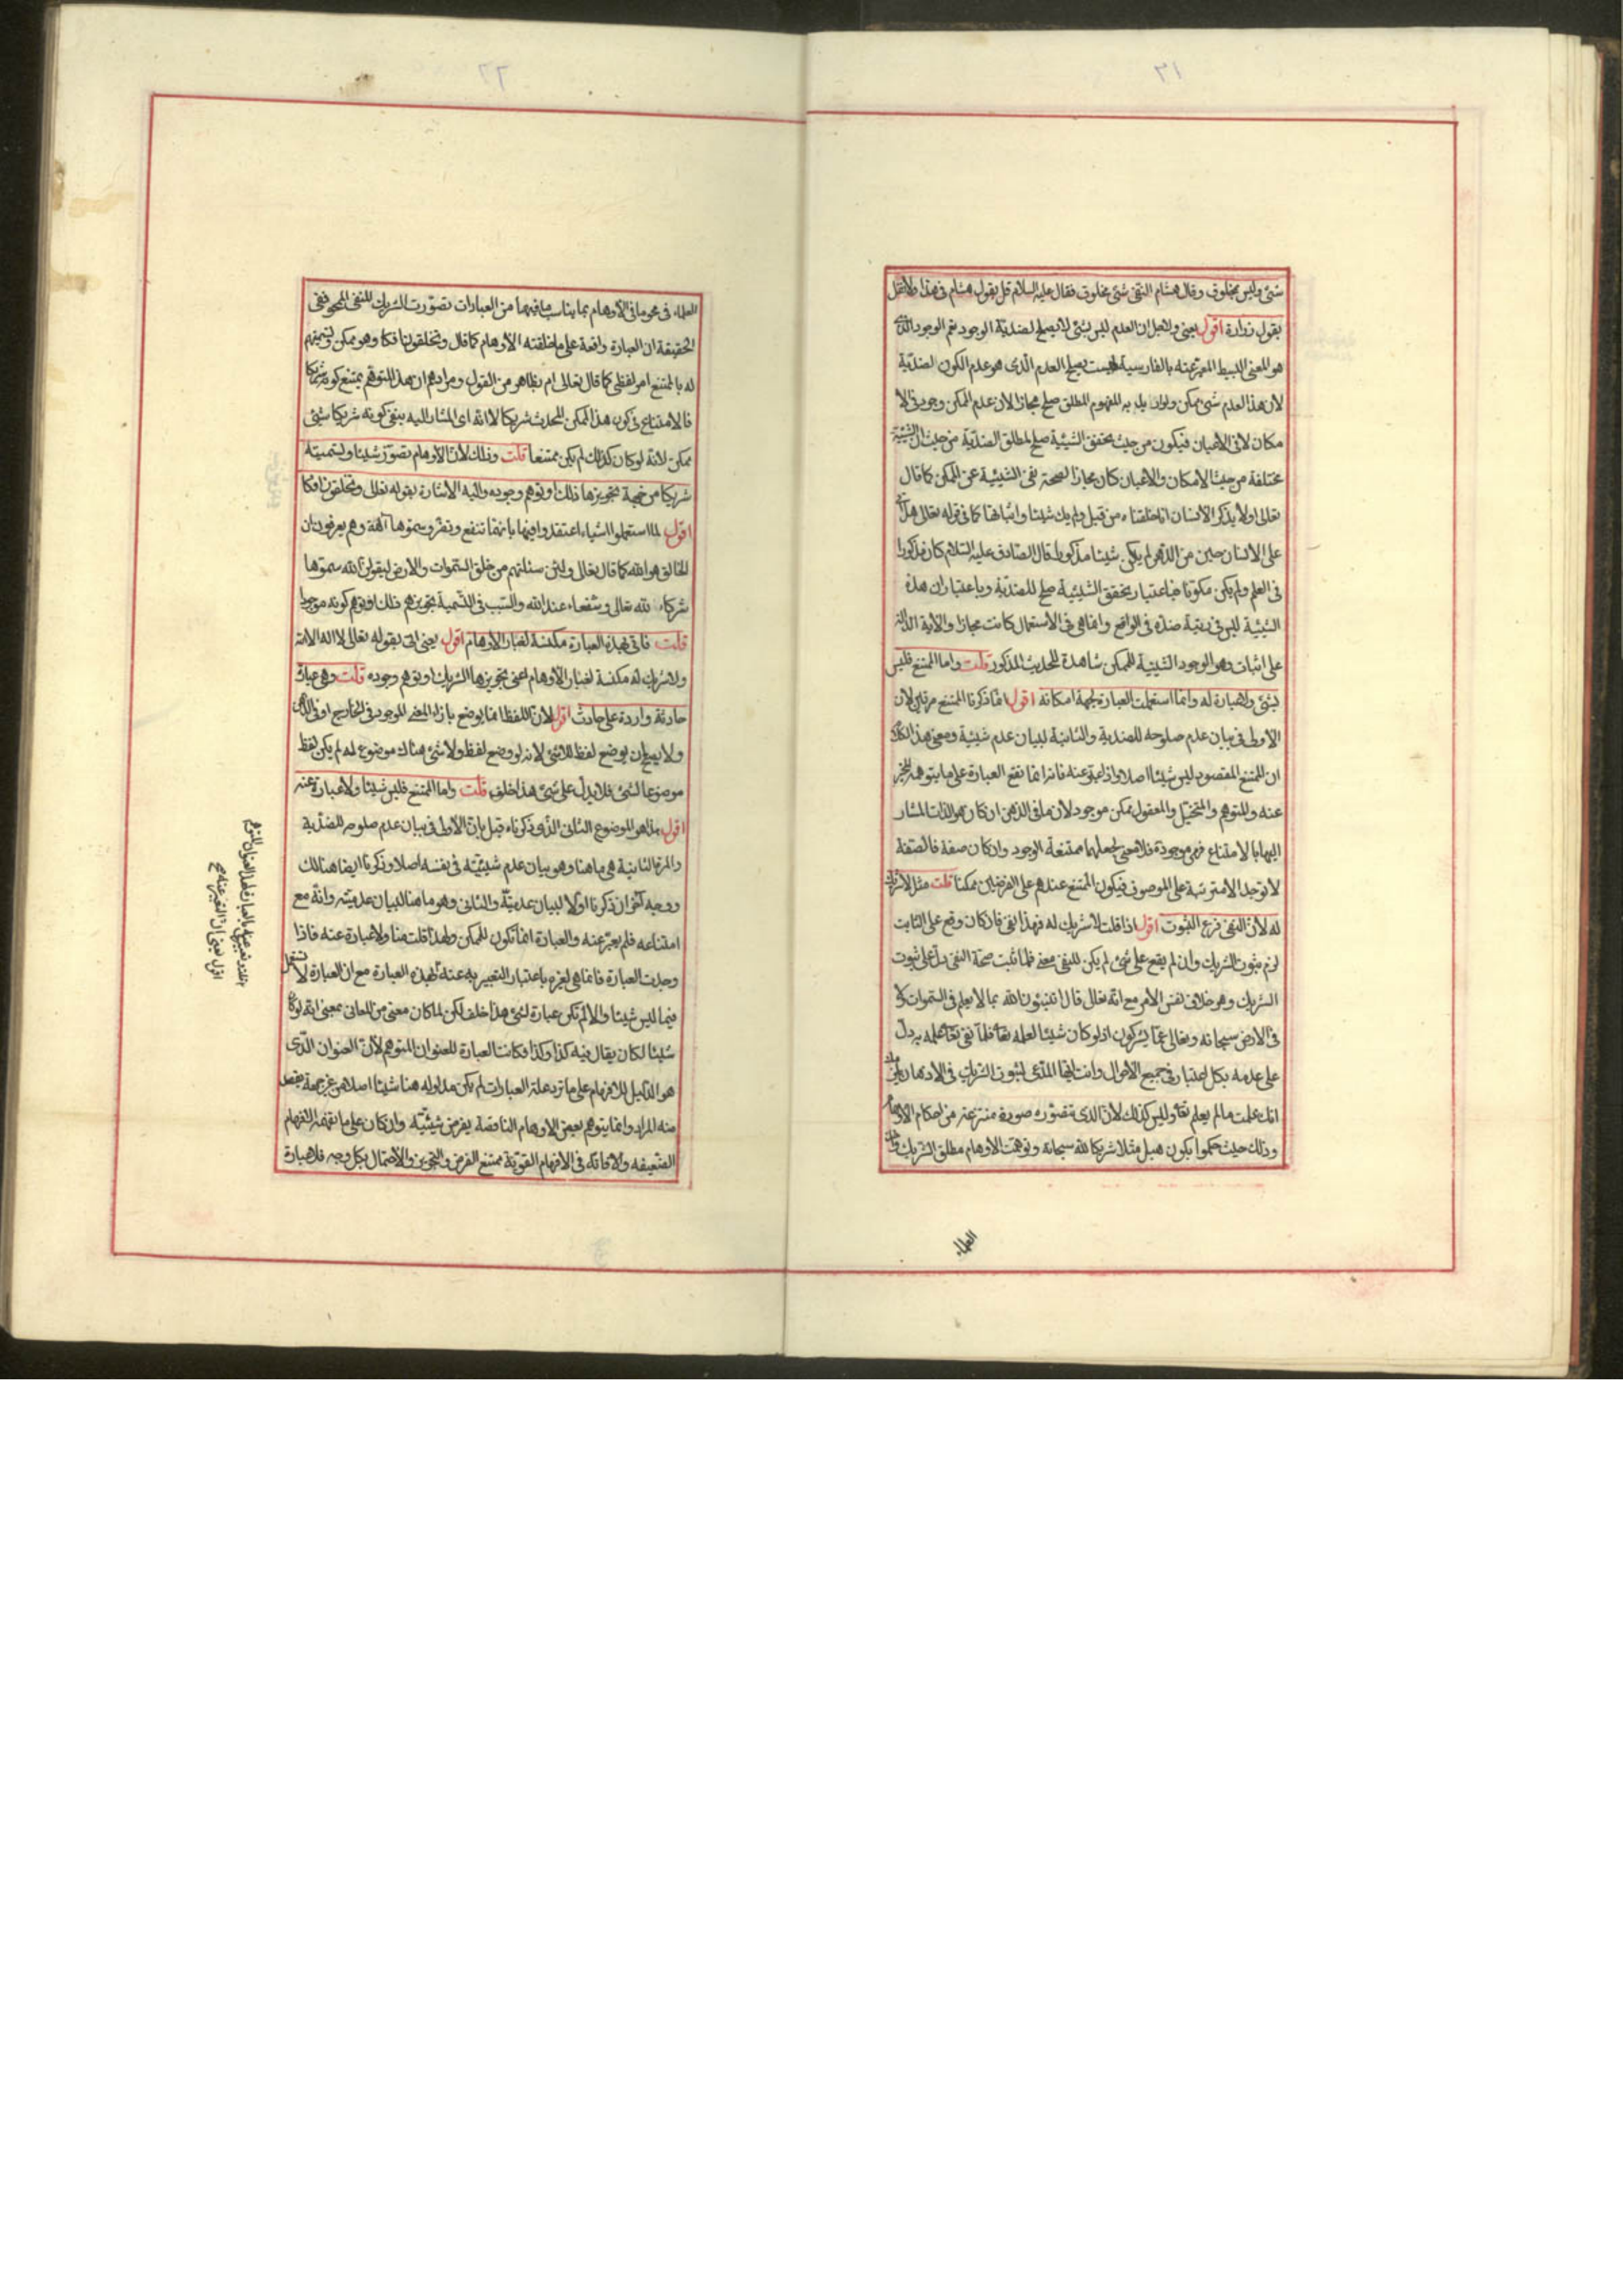 شئ وليس بمخلوق وقال هشام النفى شئ مخلوق فقال عليه السلام قل بقول هشام فى هذا ولا تقل
بقول زرارة اقول يعنى ولاجل ان العدم ليس بشئ لا يصلح لضدية الوجود نعم الوجود الذى
هو المعنى البسيط المعبر عنه بالفارسية بهست يصلح العدم الذى هو عدم الكون لضدية
لان هذا العدم شئ ممكن ولو اريد به المفهوم المطلق صلح مجازا لان عدم الممكن وجود فى الا
مكان لا فى الاعيان فيكون من حيث تحقق الشيئية صلح لمطلق الضدية من حيث ان الشيئية
مختلفة من حيث الامكان والاعيان كان مجازا لصحة نفى الشيئية عن الممكن كما قال
تعالى اولا يذكر الانسان انا خلقناه من قبل ولم يك شيئا واثباتها كما فى قوله تعالى هل اتى
على الانسان حين من الدهر لم يكن شيئا مذكورا قال الصادق عليه السلام كان مذكورا
فى العلم ولم يكن مكونا فباعتبار تحقق الشيئية صلح للضدية وباعتبار ان هذه
الشيئية ليس فى رتبة ضده فى الواقع وانما هى فى الاستعمال كانت مجازا والاية الدالة
على اثبات وهو الوجود الشيئية للممكن شاهدة للحديث المذكور قلت واما الممتنع فليس
بشئ ولا عبارة له وانما استعملت العبارة لجهة امكانه اقول انما ذكرنا الممتنع مرتين لان
الاولى فى بيان عدم صلوحه للضدية والثانية لبيان عدم شيئية ومعنى هذا الكلام
ان الممتنع المقصود ليس شيئا اصلا واذا عبر عنه فانما تقع العبارة على ما يتوهمه المخبر
عنه والمتوهم والمتخيل والمعقول ممكن موجود لان ما فى الذهن ان كان هو الذات المشار
اليها بالامتناع فهى موجودة فلا معنى لجعلها ممتنعة الوجود وان كان صفة فالصفة
لا توجد الا مترتبة على الموصوف فيكون الممتنع عندهم على الفرضين ممكنا قلت مثل لا شريك
له لان النفى فرع الثبوت اقول اذا قلت لا شريك له فهذا نفى فان كان وقع على الثابت
لزم ثبوت الشريك وان لم يقع على شئ لم يكن للنفى معنى فلما ثبت صحة النفى دل على ثبوت
الشريك وهو خلاف نفس الامر مع انه تعالى قال اتنبئون الله بما لا يعلم فى السموات ولا
فى الارض سبحانه وتعالى عما يشركون اذ لو كان شيئا لعلمه تعا فلما نفى تعا علمه به دل
على عدمه بكل اعتبار فى جميع الاحوال وانت ايها المدعى لثبوت الشريك فى الاذهان
انك علمت ما لم يعلم تعا وليس كذلك لان الذى تتصوره صورة منتزعة من احكام الاوهام
وذلك حيث حكموا بكون هبل مثلا شريكا لله سبحانه وتوهمت الاوهام مطلق الشريك
العلماء
العلماء فى محو ما فى الاوهام بما يناسب ما فيهما من العبارات تصورت الشريك للنفى المحو ففى
الحقيقة ان العبارة واقعة على ما خلقته الاوهام كما قال وتخلقون افكا وهو ممكن تسميتهم
له بالممتنع امر لفظى كما قال تعالى ام بظاهر من القول ومرادهم ان هذا المتوهم يمتنع كونه شريكا
فالامتناع فى كون هذا الممكن المحدث شريكا لا انه اى المشار اليه بنفى كونه شريكا شئ
ممكن لانه لو كان كذلك لم يكن ممتنعا قلت وذلك لان الاوهام تصور شيئا وتسميته
شريكا من جهة تجويزها ذلك او توهم وجوده واليه الاشارة بقوله تعالى وتخلقون افكا
اقول لما استعملوا اشياء اعتقدوا فيها بانها تنفع وتضر وسموها آلهة وهم يعرفون ان
الخالق هو الله كما قال تعالى ولئن سئلتهم من خلق السموات والارض ليقولن الله سموها
شركاء لله تعالى وشفعاء عند الله والسبب فى التسمية تجويزهم ذلك او توهم كونه موجودا
قلت فاتى بهذه العبارة مكنسة لغبار الاوهام اقول يعنى اتى بقوله تعالى لا اله الا الله
ولا شريك له مكنسة لغبار الاوهام اعنى تجويزها الشريك او توهم وجوده قلت وهى عبارة
حادثة واردة على حادث اقول لان اللفظ انما يوضع بازاء المعنى الموجود فى الخارج او فى الذهن
ولا يصح ان يوضع لفظ للاشئ لانه لو وضع لفظ ولا شئ هناك موضوع له لم يكن لفظ
موضوعا لشئ فلا يدل على شئ هذا خلف قلت واما الممتنع فليس شيئا ولا عبارة عنه
اقول هذا هو الموضوع الثانى الذى ذكرناه قبل بان الاولى فى بيان عدم صلوحه للضدية
والمرة الثانية هى ما هنا وهو بيان عدم شيئيته فى نفسه اصلا وذكرنا ايضا هنالك
ووجه آخر ان ذكرنا اولا لبيان عدميته والثانى وهو ما هنا لبيان عدميته وانه مع
امتناعه فلم يعبر عنه والعبارة انما تكون للممكن ولهذا قلت هنا ولا عبارة عنه فاذا
وجدت العبارة فانما هى لغيره باعتبار التعبير به عنه بهذه العبارة مع ان العبارة لا تستعمل
فيما ليس شيئا والا لم تكن عبارة لشئ هذا خلف لكن لما كان معنى من المعانى بمعنى انه لو كان
شيئا لكان يقال فيه كذا وكذا فكانت العبارة للعنوان المتوهم لان العنوان الذى
هو الدليل للافهام على ما ترد علة العبارات لم يكن مدلوله هنا شيئا اصلا من غير جهة بقصد
منه المراد وانما يتوهم بعض الاوهام الناقصة بفرض شيئيته وان كان على ما تفهمه الافهام
الضعيفة والا فانه فى الافهام القوية ممتنع الفرض والتجويز والاحتمال بكل وجه فلا عبارة